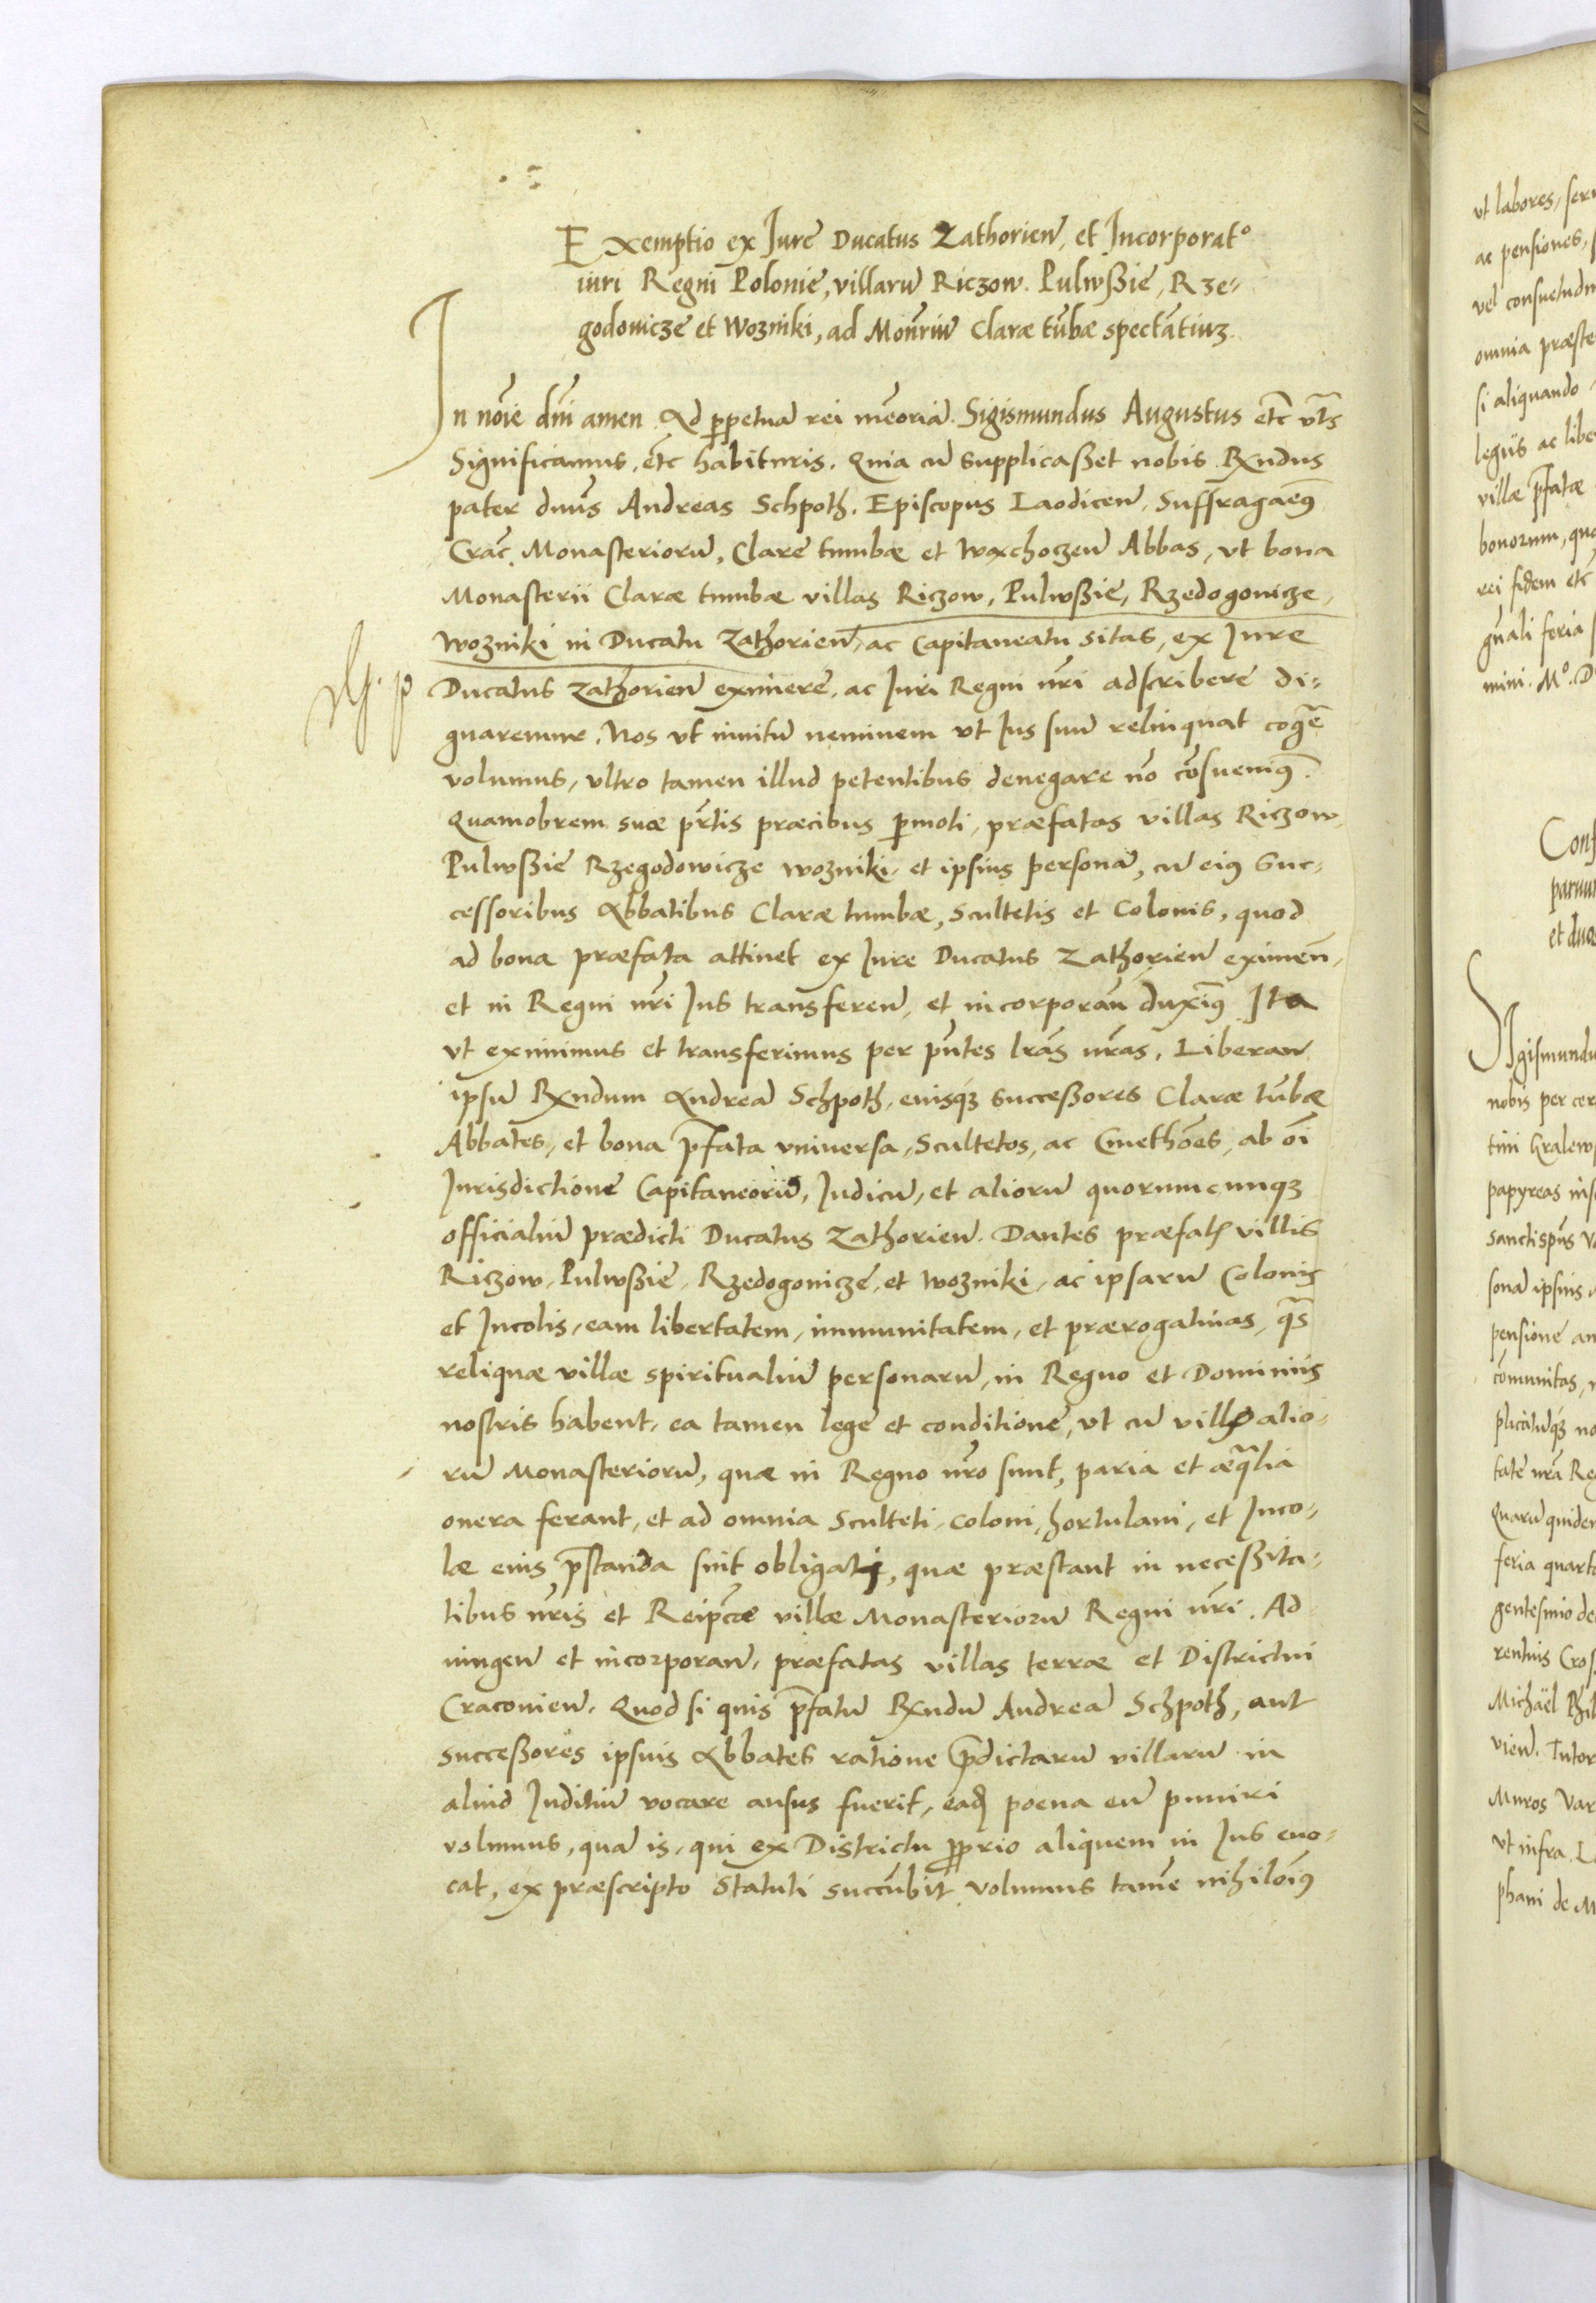 Exemptio ex Iure Ducatus Zathorien̄, et Incorporat°
iuri Regni Polonie, villarū Riczow. Pulwßie, Rze-
godowicze et Wozniki, ad Monr̄iū Claræ tūbæ spectātiuʒ.
In noīe dn̄i amen Ad ꝑpetuā rei mēoriā. Sigismundus Augustus etc̄ vt̄s
Significamus, etc̄ habituris. Quia cū supplicaßet nobis Rx̄ndus
pater dnūs Andreas Schpoth. Episcopus Laodicen̄, Suffragaēꝰ
Crac̄. Monasteriorū, Clare tumbæ et Waxchoczen̄ Abbas, vt bona
Monasterii Claræ tumbæ villas Riczow, Pulwßie, Rzedogowicze,
Wozniki in Ducatu Zathorien̄, ac Capitaneatu sitas, ex Iure
Ducatus Zathorien̄ eximere, ac Iuri Regni nr̄i adscribere di-
gnaremur. Nos vt inuitū neminem vt Ius suū relinquat cogr̄e
volumus, vltro tamen illud petentibus denegare nō cōsueuimꝰ.
Quamobrem suæ pr̄tis præcibus ꝑmoti, præfatas villas Riczow,
Pulwßie Rzegodowicze Wozniki, et ipsius personā, cū eiꝰ suc-
cessoribus Abbatibus Claræ tumbæ, Scultetis et Colonis, quod
ad bona præfata attinet ex Iure Ducatus Zathorien̄ eximen̄,
et in Regni nr̄i Ius transferen̄, et incorporan̄ duximꝰ Ita
vt eximimus et transferimus per pn̄tes lrās nrās, Liberan̄
ipsū Rx̄ndum Andreā Schpoth, euisqʒ Succeßores Claræ tūbæ
Abbates, et bona p̄fata vniuersa, Scultetos, ac Cmethōes, ab oī
Iurisdictione Capitaneorū, Iudicū, et aliorū quorumcunqʒ
officialiū prædicti Ducatus Zathorien̄. Dantes præfatꝭ villis
Riczow, Pulwßie, Rzedogowicze, et Wozniki, ac ipsarū Colonis
et Incolis, eam libertatem, immunitatem, et prærogatiuas, qs̄
reliquæ villæ spiritualiū personarū, in Regno et Dominiis
nostris habent, ea tamen lege et conditione, vt cū villꝭ alio-
rū Monasteriorū, quæ in Regno nr̄o sunt, paria et æqualia
onera ferant, et ad omnia Sculteti, coloni, hortulani, et Inco-
læ eius p̄standa sint obligati, quæ præstant in neceßita-
tibus nr̄is et Reipc̄æ villæ Monasteriorū Regni nr̄i. Ad
iungen̄ et incorporan̄, præfatas villas terræ et Districtui
Cracouien̄. Quod si quis p̄fatū Rx̄ndū Andreā Schpoth, aut
succeßores ipsuis Abbates ratione p̄dictarū villarū in
aliud Iuditiū vocare ausus fuerit, eadꝫ poena eū puniri
volumus, qua is, qui ex Districtu ꝓprio aliquem in Ius euo-
cat, ex præscripto Statuti succūbit. Volumus tamē nihilōiꝰ
vt labores,
ac pensiones,
vel consuetudin
omnia præste
si aliquando
legiis ac liber
villæ p̄fatæ
bonorum, qua
rei fidem etc̄
gn̄ali feria
mini. M°. D
Conf
paruu
et duos
Sigismundu
nobis per cer
tini Cralew
papyreas
Sanctispūs
sonā ipsius
pensione an
cōmunitas,
plicatūqʒ no
tatē nrā Re
Quarū quidem
feria quarta
gentesimo de
rentius Cros
Michäel
vien̄. Tutor
Muros Var
vt infra. L
phani de M